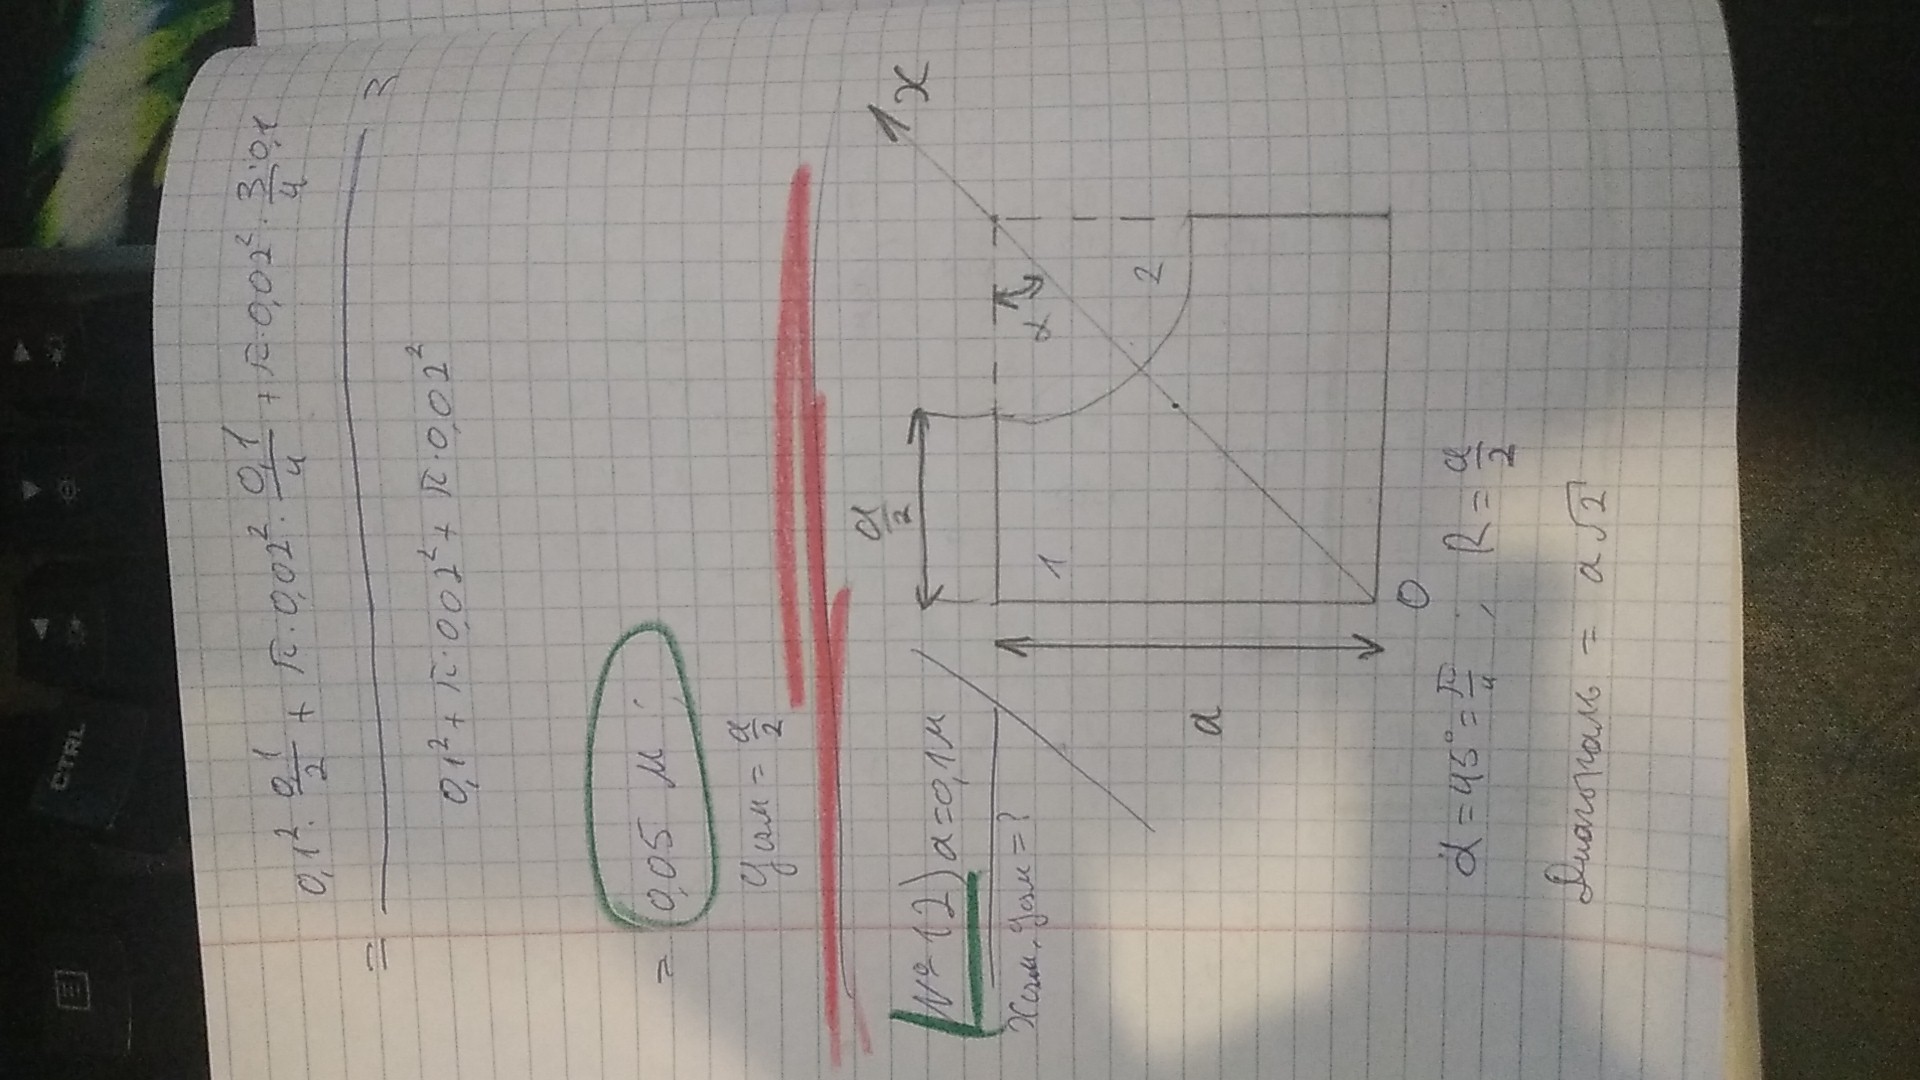 CTRL
0,1² · 0,1/2 + π · 0,02² · 0,1/4 + π · 0,02² · 3·0,1/4
=
0,1² + π · 0,02² + π · 0,02²
= 0,05 м ;
yцм = a/2
a/2
x
№ 12) a = 0,1 м
xцм, yцм = ?
1
α
2
a
0
α = 45° = π/4 ; R = a/2
Диагональ = a√2